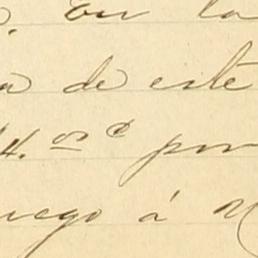 en la
a de este
4. os c por
uego á